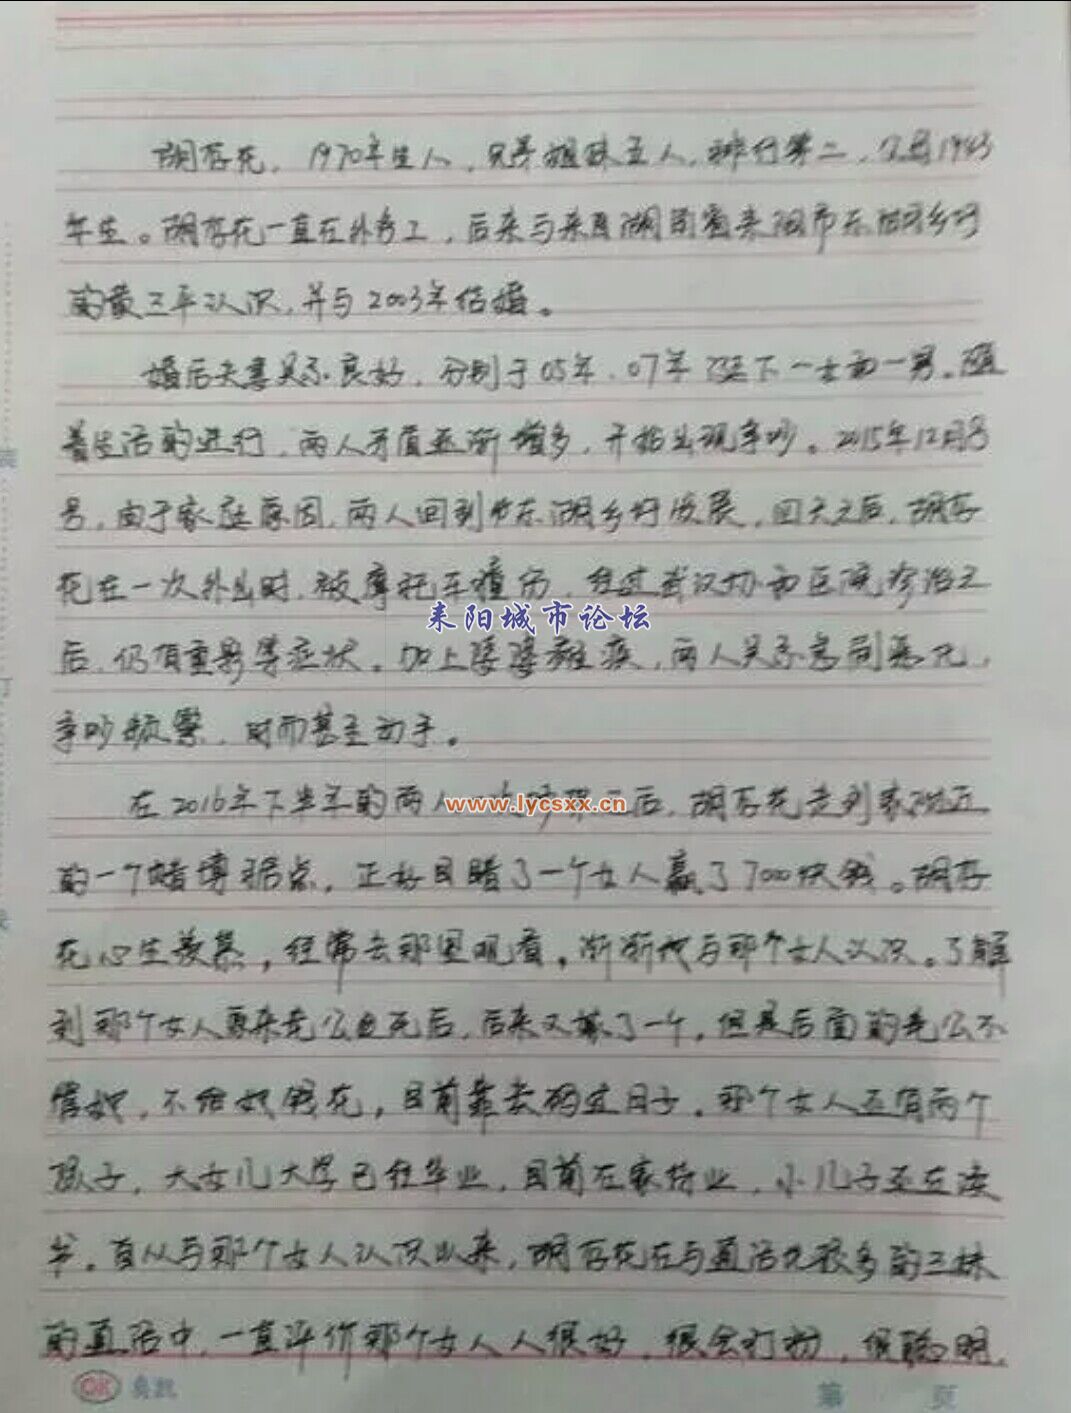 胡存花，1970年生人，兄弟姐妹五人，排行第二，父母1943
年生。胡存花一直在外务工，后来与来自湖南省耒阳市东湖乡村
的黄三平认识，并与2003年结婚。
婚后夫妻关系良好，分别于05年、07年诞下一女和一男。随
着生活的进行，两人矛盾逐渐增多，开始出现争吵。2015年12月8
号，由于家庭原因，两人回到东湖乡村发展，回去之后，胡存
花在一次外出时，被摩托车撞伤，经过武汉协和医院诊治之
耒阳城市论坛
后，仍有重影等症状。加上婆婆难缠，两人关系急剧恶化，
争吵频繁，时而甚至动手。
在2016年下半年的两人一次之后，胡存花走到家附近
www.lycsxx.cn
的一个赌博据点，正好目睹了一个女人赢了7000块钱。胡存
花心生羡慕，经常去那里观看。渐渐地与那个女人认识。了解
到那个女人原来老公去死后，后来又嫁了一个，但是后面的老公不
管她，不给她钱花，目前靠卖码过日子。那个女人还有两个
孩子，大女儿大学已经毕业，目前在家待业，小儿子还在读
书。自从与那个女人认识以来，胡存花在与通话比较多的三妹
的通话中，一直评价那个女人人很好，很会打扮，很聪明，
OK 奥凯
第 页
订